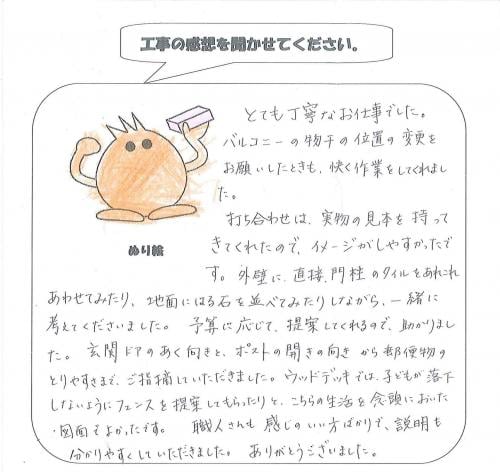 工事の感想を聞かせてください。
とても丁寧なお仕事でした。
バルコニーの物干の位置の変更を
お願いしたときも、快く作業をしてくれまし
た。
打ち合わせは、実物の見本を持って
きてくれたので、イメージがしやすかったで
す。外壁に、直接、門柱のタイルをあれこれ
ぬり絵
あわせてみたり、地面にはる石を並べてみたりしながら、一緒に
考えてくださいました。予算に応じて、提案してくれるので、助かりまし
た。玄関ドアのあく向きと、ポストの開きの向きから郵便物の
とりやすさまで、ご指摘していただきました。ウッドデッキでは、子どもが落下
しないようにフェンスを提案してもらったりと、こちらの生活を念頭においた
図面でよかったです。職人さんも感じのいい方ばかりで、説明も
分かりやすくしていただきました。ありがとうございました。